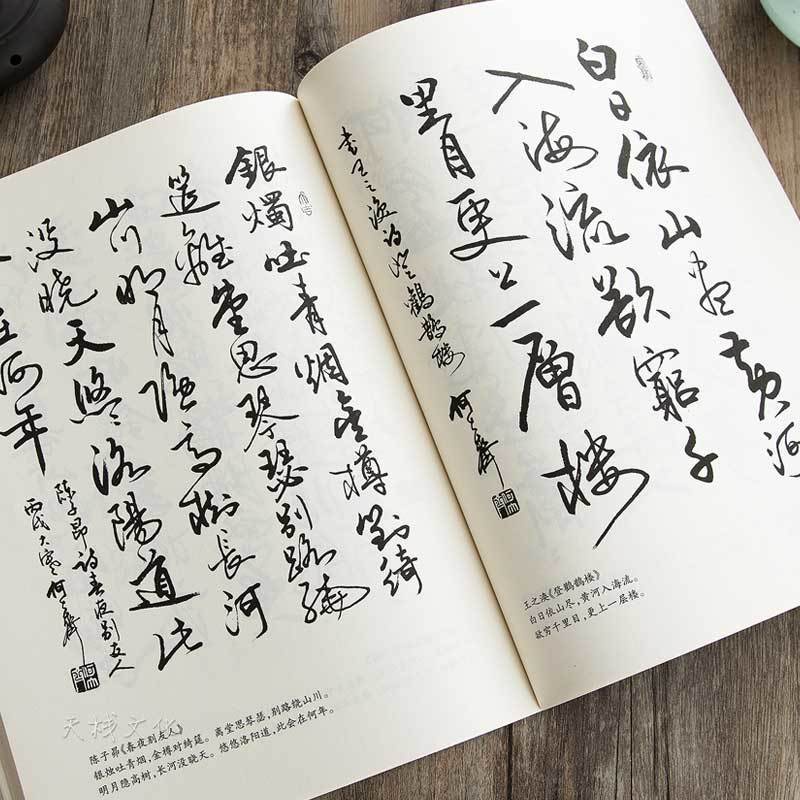 銀燭吐青烟金樽對綺
筵離堂思琴瑟别路繞
山川明月隱高樹長河
没曉天悠悠洛陽道此
在何年
陈子昂诗春夜别友人
丙戌大寒 何
陈子昂《春夜别友人》
银烛吐青烟,金樽对绮筵。离堂思琴瑟,别路绕山川。
明月隐高树,长河没晓天。悠悠洛阳道,此会在何年。
天栈文化
白日依山盡黄河
入海流欲窮千
里目更上一層楼
书王之涣诗登鹳鹊楼 何
王之涣《登鹳鹊楼》
白日依山尽,黄河入海流。
欲穷千里目,更上一层楼。